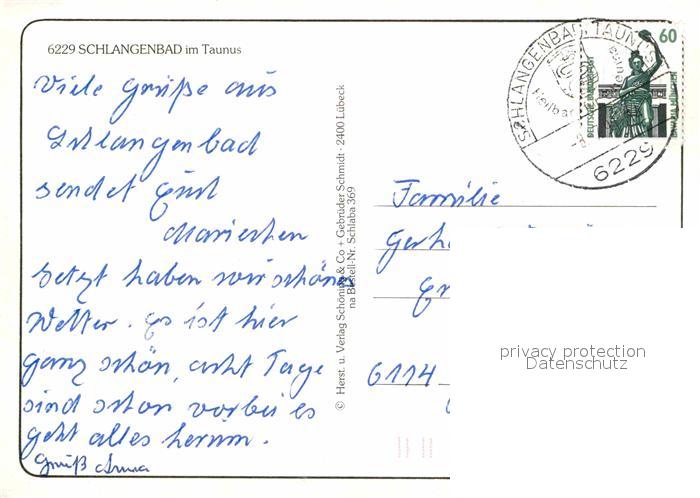 6229 SCHLANGENBAD im Taunus
Viele Grüße aus
Schlangenbad
sendet Euch
Mariechen
Jetzt haben wir schönes
Wetter. Es ist hier
ganz schön, acht Tage
sind schon vorbei es
geht alles herum.
Gruß Anna
© Herst. u. Verlag Schöning & Co + Gebrüder Schmidt · 2400 Lübeck
na Bestell-Nr. Schlaba 369
SCHLANGENBAD, TAUNUS
6229
60
DEUTSCHE BUNDESPOST
BAVARIA MÜNCHEN
Familie
6114
privacy protection
Datenschutz